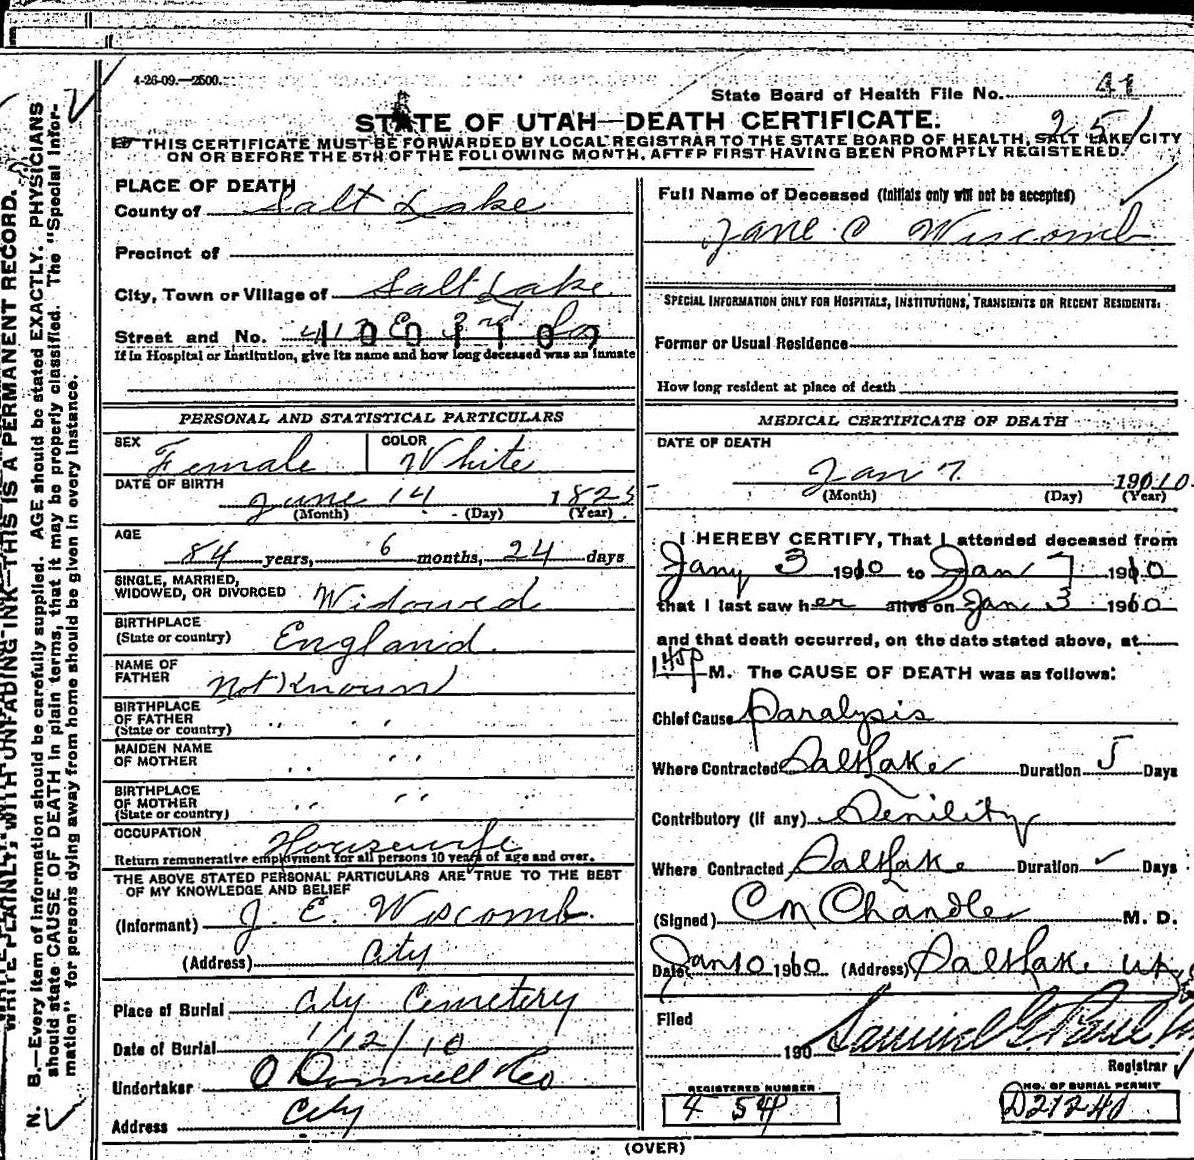 4-26-09.—2500.
State Board of Health File No. 41
STATE OF UTAH—DEATH CERTIFICATE.
251
THIS CERTIFICATE MUST BE FORWARDED BY LOCAL REGISTRAR TO THE STATE BOARD OF HEALTH, SALT LAKE CITY
ON OR BEFORE THE 5TH OF THE FOLLOWING MONTH, AFTER FIRST HAVING BEEN PROMPTLY REGISTERED.
PLACE OF DEATH
County of Salt Lake
Precinct of
City, Town or Village of Salt Lake
Street and No. E 3rd So
If in Hospital or Institution, give its name and how long deceased was an inmate
Full Name of Deceased (Initials only will not be accepted)
Jane C Wiscomb
SPECIAL INFORMATION ONLY FOR HOSPITALS, INSTITUTIONS, TRANSIENTS OR RECENT RESIDENTS:
Former or Usual Residence
How long resident at place of death
PERSONAL AND STATISTICAL PARTICULARS
SEX Female COLOR White
DATE OF BIRTH
June 14 1825
(Month) (Day) (Year)
AGE
84 years, 6 months, 24 days
SINGLE, MARRIED,
WIDOWED, OR DIVORCED Widowed
BIRTHPLACE
(State or country) England.
NAME OF
FATHER Not Known
BIRTHPLACE
OF FATHER " "
(State or country)
MAIDEN NAME
OF MOTHER " "
BIRTHPLACE
OF MOTHER " "
(State or country)
OCCUPATION Housewife
Return remunerative employment for all persons 10 years of age and over.
THE ABOVE STATED PERSONAL PARTICULARS ARE TRUE TO THE BEST
OF MY KNOWLEDGE AND BELIEF
(Informant) J. E. Wiscomb.
(Address) City
Place of Burial City Cemetery
Date of Burial 1/12/10
Undertaker O Donnell & Co
Address City
MEDICAL CERTIFICATE OF DEATH
DATE OF DEATH
Jan 7. 1910
(Month) (Day) (Year)
I HEREBY CERTIFY, That I attended deceased from
Jany 3 1910 to Jan 7 1910
that I last saw her alive on Jan 3 1910
and that death occurred, on the date stated above, at
1.45P M. The CAUSE OF DEATH was as follows:
Chief Cause Paralysis
Where Contracted Salt Lake Duration 5 Days
Contributory (if any) Senility
Where Contracted Salt Lake Duration ✓ Days
(Signed) CM Chandler M. D.
Date Jan 10 1910 (Address) Salt Lake Ut
Filed
190 Samuel G. Paul
Registrar
REGISTERED NUMBER
4 54
NO. OF BURIAL PERMIT
D21240
(OVER)
WRITE PLAINLY, WITH UNFADING INK—THIS IS A PERMANENT RECORD.
N. B.—Every item of information should be carefully supplied. AGE should be stated EXACTLY. PHYSICIANS
should state CAUSE OF DEATH in plain terms, that it may be properly classified. The "Special Infor-
mation" for persons dying away from home should be given in every instance.